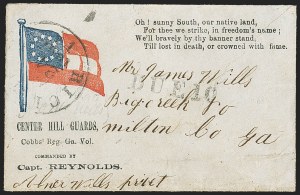 Oh! sunny South, our native land,
For thee we strike, in freedom's name;
We'll bravely by the banner stand,
Till lost in death, or crowned with fame.
Mr James Wills
DUE 10
Big creek Po
CENTER HILL GUARDS,
milton Co Ga
Cobbs' Reg. Ga. Vol.
COMMANDED BY
Capt. REYNOLDS.
Abner Wills privet